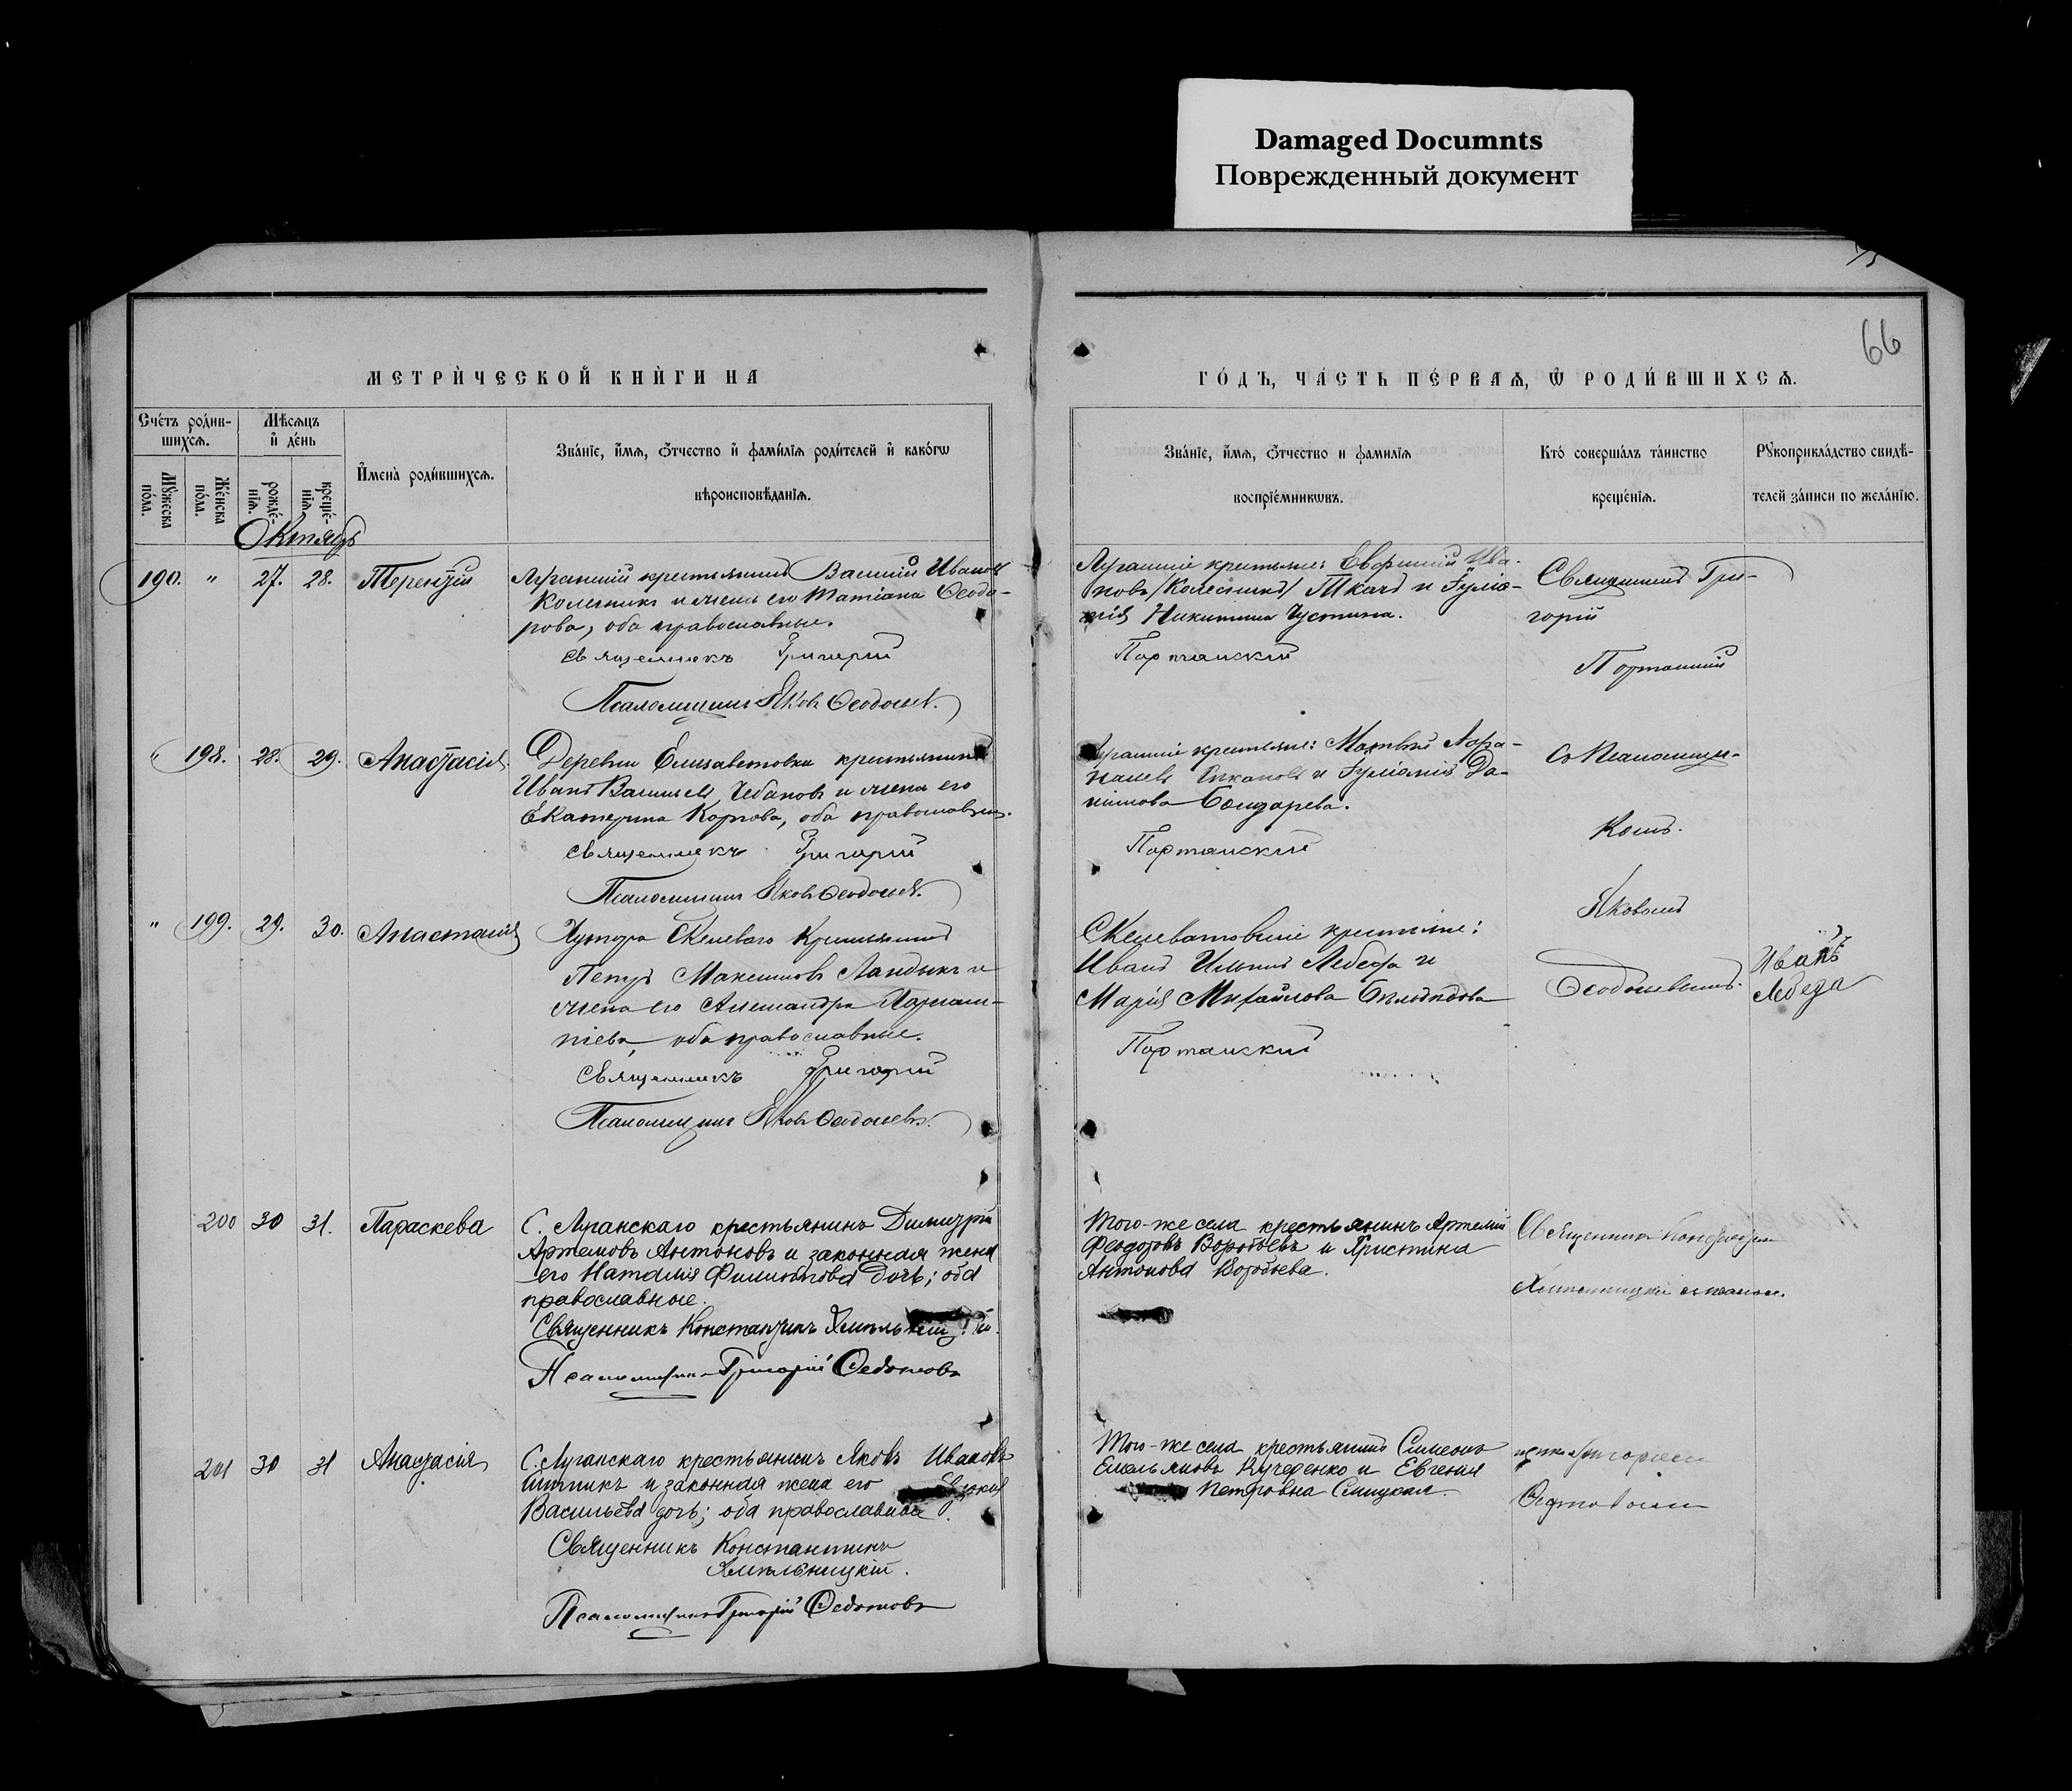 Damaged Documnts
Поврежденный документ
66
МЕТРИЧЕСКОЙ КНИГИ НА
ГОДЪ, ЧАСТЬ ПЕРВАЯ, Ѿ РОДИВШИХСЯ.
Счетъ родив-
шихся.
Мѣсяцъ
и день
Мужеска
пола.
Женска
пола.
рожде-
нія.
креще-
нія.
Имена родившихся.
Званіе, имя, отчество и фамилія родителей и какогѡ
вѣроисповѣданія.
Званіе, имя, отчество и фамилія
воспріемникѡвъ.
Кто совершалъ таинство
крещенія.
Рукоприкладство свидѣ-
телей записи по желанію.
Октябрь
190. " 27. 28. Терентій
Луганскій крестьянинъ Василій Ивановъ
Колесникъ и жена его Татіана Ѳеодо-
рова, оба православные.
Священникъ Григорій
Портанскій
Псаломщикъ Яковъ Ѳеодосіев.
Луганскіе крестьяне: Евфимій Ива-
новъ /Колесникъ/ Ткачъ и Іуліа-
нія Никитина Чустина.
Священникъ Гри-
горій
Портанскій
" 198. 28. 29. Анастасія.
Деревни Елизаветовки крестьянинъ
Иванъ Васильевъ Чебановъ и жена его
Екатерина Карпова, оба православные.
Священникъ Григорій
Портанскій
Псаломщикъ Яковъ Ѳеодосіев.
крестьяне: Матвѣй
и Іуліанія Да-
нилова Бондарева.
Съ Псаломщи-
комъ.
Яковомъ
Ѳеодосіевымъ.
" 199. 29. 30. Анастасія
Хутора Скелеваго Крестьянинъ
Петръ Максимовъ Ландыкъ и
жена его Александра
оба православные.
Священникъ Григорій
Портанскій
Псаломщикъ Яковъ Ѳеодосіевъ.
Скелеватовскіе крестьяне:
Иванъ Ильинъ Лебеда и
Марія Михайлова
Иванъ
Лебеда
200 30 31. Параскева
С. Луганскаго крестьянинъ Димитрій
Артемовъ Антоновъ и законная жена
его Наталія Филиппова дочь; оба
православные.
Священникъ Константинъ
Псаломщикъ Григорій Федотовъ
Того-же села крестьянинъ Артемій
Феодотовъ Воробьевъ и Христина
Антонова Воробьева.
Священникъ
201 30 31 Анастасія
С. Луганскаго крестьянинъ Яковъ Ивановъ
и законная жена его
Васильева дочь; оба православные.
Священникъ Константинъ
Хмѣльницкій.
Псаломщикъ Григорій Федотовъ
Того-же села крестьянинъ Симеонъ
Емельяновъ Кучеренко и Евгенія
Петровна Слицкая.
Григоріемъ
Федотовымъ